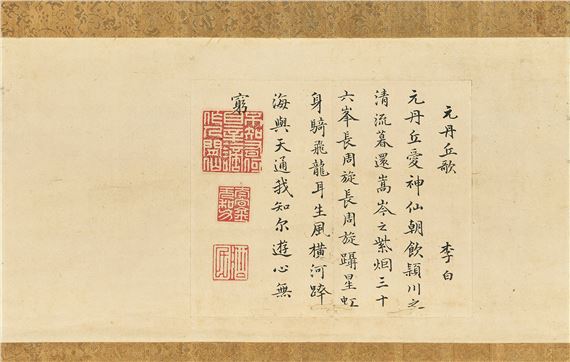 元丹丘歌　李白
元丹丘愛神仙朝飲潁川之
清流暮還嵩岑之紫烟三十
六峯長周旋長周旋躡星虹
身騎飛龍耳生風橫河跨
海與天通我知尔遊心無
窮